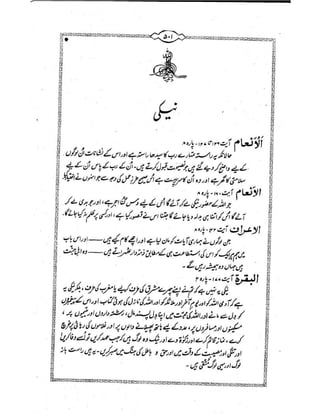 ۵۰۱
نیکی
اَلْاَنعام آیت ۱۲۶، ۱۲۷ - پارہ ۸
حالانکہ یہ راستہ تمہارے رب کا سیدھا راستہ ہے اور اس کے نشانات ان لوگوں
کے لیے واضح کر دیے گئے ہیں جو نصیحت قبول کرتے ہیں۔ ان کے رب کے پاس ان کے لیے
سلامتی کا گھر ہے اور وہ ان کا سرپرست ہے اس صحیح طرز عمل کی وجہ سے جو انہوں نے اختیار کیا۔
الانعام آیت ۱۶۰ - پارہ ۸
جو اللہ کے حضور نیکی لے کر آئے گا اس کے لیے دس گنا اجر ہے، اور جو بدی لے کر
آئے گا اس کو اتنا ہی بدلہ دیا جائے گا جتنا اس نے قصور کیا ہے، اور کسی پر ظلم نہ کیا جائے گا۔
الاعراف آیت ۴۲ - پارہ ۸
جن لوگوں نے ہماری آیات کو مان لیا ہے اور اچھے کام کیے ہیں — اور اس باب
میں ہم ہر ایک کو اس کی استطاعت ہی کے مطابق ذمہ دار ٹھہراتے ہیں — وہ اہل جنت
ہیں جہاں وہ ہمیشہ رہیں گے۔
البقرة آیت ۱۷۷ - پارہ ۲
نیکی یہ نہیں ہے کہ تم نے اپنے چہرے مشرق کی طرف کر لیے یا مغرب کی طرف، بلکہ نیکی یہ
ہے کہ آدمی اللہ کو اور یوم آخر اور ملائکہ کو اور اللہ کی نازل کی ہوئی کتاب اور اس کے پیغمبروں
کو دل سے مانے اور اللہ کی محبت میں اپنا دل پسند مال، رشتہ داروں اور یتیموں پر،
مسکینوں اور مسافروں پر، مدد کے لیے ہاتھ پھیلانے والوں پر اور غلاموں کی رہائی پر خرچ
کرے، نماز قائم کرے اور زکوٰۃ دے، اور نیک وہ لوگ ہیں کہ جب عہد کریں تو اُسے وفا کریں
اور تنگی اور مصیبت کے وقت میں اور حق و باطل کی جنگ میں صبر کریں۔ یہ ہیں راست باز
لوگ اور یہی لوگ متقی ہیں۔